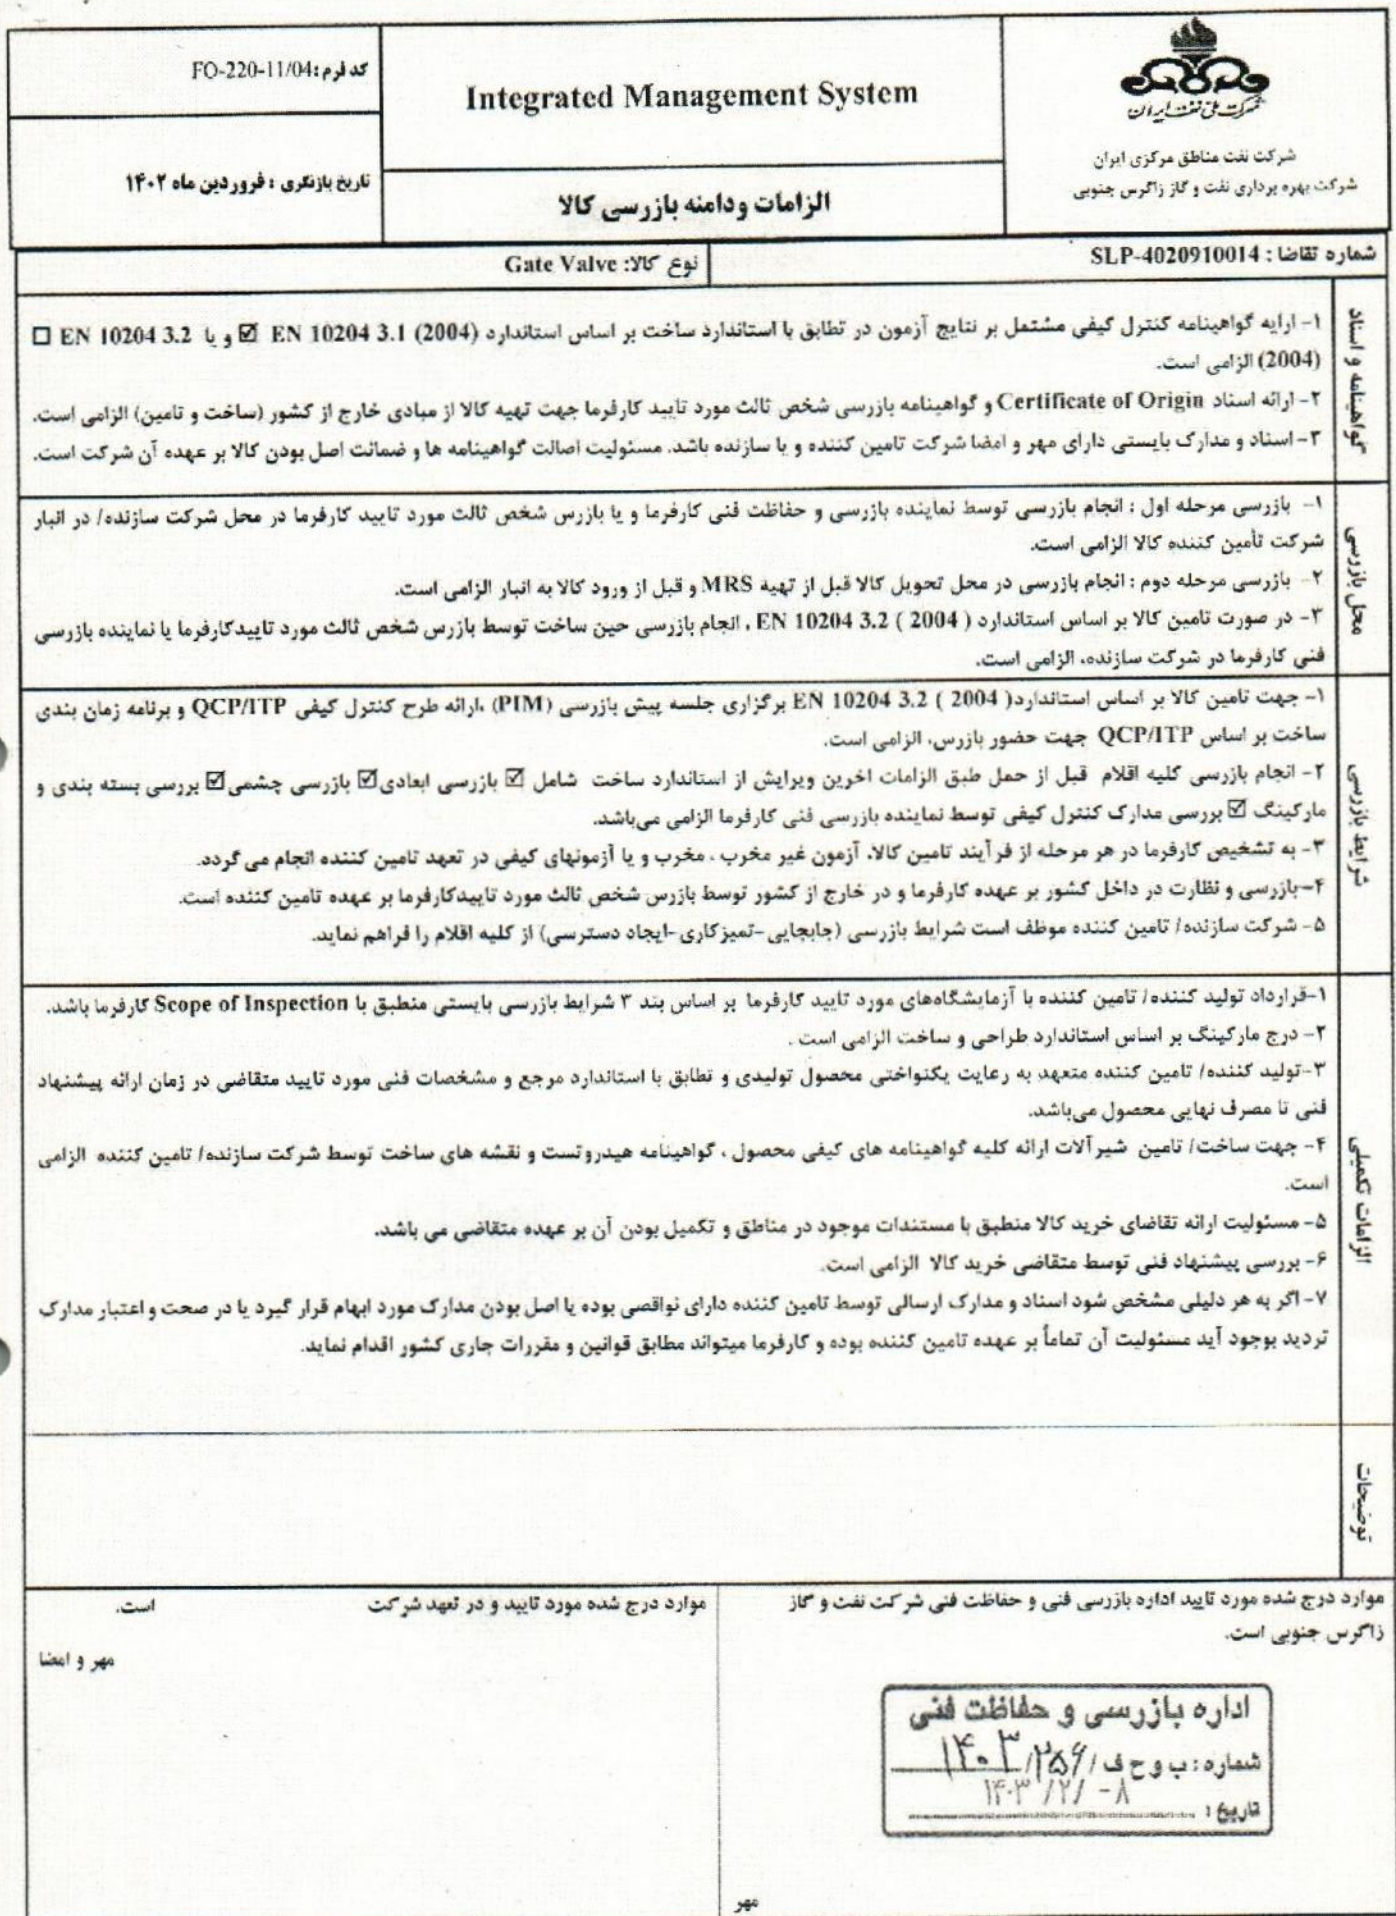 کد فرم: FO-220-11/04
تاریخ بازنگری : فروردین ماه ۱۴۰۲
Integrated Management System
الزامات ودامنه بازرسی کالا
شرکت ملی نفت ایران
شرکت نفت مناطق مرکزی ایران
شرکت بهره برداری نفت و گاز زاگرس جنوبی
شماره تقاضا : SLP-4020910014
نوع کالا: Gate Valve
گواهینامه و اسناد
۱- ارایه گواهینامه کنترل کیفی مشتمل بر نتایج آزمون در تطابق با استاندارد ساخت بر اساس استاندارد EN 10204 3.1 (2004) ☑ و یا EN 10204 3.2 ☐
(2004) الزامی است.
۲- ارائه اسناد Certificate of Origin و گواهینامه بازرسی شخص ثالث مورد تایید کارفرما جهت تهیه کالا از مبادی خارج از کشور (ساخت و تامین) الزامی است.
۳- اسناد و مدارک بایستی دارای مهر و امضا شرکت تامین کننده و یا سازنده باشد. مسئولیت اصالت گواهینامه ها و ضمانت اصل بودن کالا بر عهده آن شرکت است.
محل بازرسی
۱- بازرسی مرحله اول : انجام بازرسی توسط نماینده بازرسی و حفاظت فنی کارفرما و یا بازرس شخص ثالث مورد تایید کارفرما در محل شرکت سازنده/ در انبار
شرکت تأمین کننده کالا الزامی است.
۲- بازرسی مرحله دوم : انجام بازرسی در محل تحویل کالا قبل از تهیه MRS و قبل از ورود کالا به انبار الزامی است.
۳- در صورت تامین کالا بر اساس استاندارد EN 10204 3.2 ( 2004 ) ، انجام بازرسی حین ساخت توسط بازرس شخص ثالث مورد تاییدکارفرما یا نماینده بازرسی
فنی کارفرما در شرکت سازنده، الزامی است.
شرایط بازرسی
۱- جهت تامین کالا بر اساس استاندارد EN 10204 3.2 ( 2004 ) برگزاری جلسه پیش بازرسی (PIM) ،ارائه طرح کنترل کیفی QCP/ITP و برنامه زمان بندی
ساخت بر اساس QCP/ITP جهت حضور بازرس، الزامی است.
۲- انجام بازرسی کلیه اقلام قبل از حمل طبق الزامات اخرین ویرایش از استاندارد ساخت شامل ☑ بازرسی ابعادی ☑ بازرسی چشمی ☑ بررسی بسته بندی و
مارکینگ ☑ بررسی مدارک کنترل کیفی توسط نماینده بازرسی فنی کارفرما الزامی می‌باشد.
۳- به تشخیص کارفرما در هر مرحله از فرآیند تامین کالا، آزمون غیر مخرب ، مخرب و یا آزمونهای کیفی در تعهد تامین کننده انجام می گردد.
۴-بازرسی و نظارت در داخل کشور بر عهده کارفرما و در خارج از کشور توسط بازرس شخص ثالث مورد تاییدکارفرما بر عهده تامین کننده است.
۵- شرکت سازنده/ تامین کننده موظف است شرایط بازرسی (جابجایی-تمیزکاری-ایجاد دسترسی) از کلیه اقلام را فراهم نماید.
الزامات تکمیلی
۱-قرارداد تولید کننده/ تامین کننده با آزمایشگاه‌های مورد تایید کارفرما بر اساس بند ۳ شرایط بازرسی بایستی منطبق با Scope of Inspection کارفرما باشد.
۲- درج مارکینگ بر اساس استاندارد طراحی و ساخت الزامی است .
۳-تولید کننده/ تامین کننده متعهد به رعایت یکنواختی محصول تولیدی و تطابق با استاندارد مرجع و مشخصات فنی مورد تایید متقاضی در زمان ارائه پیشنهاد
فنی تا مصرف نهایی محصول می‌باشد.
۴- جهت ساخت/ تامین شیرآلات ارائه کلیه گواهینامه های کیفی محصول ، گواهینامه هیدروتست و نقشه های ساخت توسط شرکت سازنده/ تامین کننده الزامی
است.
۵- مسئولیت ارائه تقاضای خرید کالا منطبق با مستندات موجود در مناطق و تکمیل بودن آن بر عهده متقاضی می باشد.
۶- بررسی پیشنهاد فنی توسط متقاضی خرید کالا الزامی است.
۷- اگر به هر دلیلی مشخص شود اسناد و مدارک ارسالی توسط تامین کننده دارای نواقصی بوده یا اصل بودن مدارک مورد ابهام قرار گیرد یا در صحت و اعتبار مدارک
تردید بوجود آید مسئولیت آن تماماً بر عهده تامین کننده بوده و کارفرما میتواند مطابق قوانین و مقررات جاری کشور اقدام نماید.
توضیحات
موارد درج شده مورد تایید اداره بازرسی فنی و حفاظت فنی شرکت نفت و گاز
زاگرس جنوبی است.
اداره بازرسی و حفاظت فنی
شماره: ب و ح ف /۲۵۶/ ۱۴۰۳
تاریخ : ۱۴۰۳/۲/-۸
مهر
موارد درج شده مورد تایید و در تعهد شرکت است.
مهر و امضا